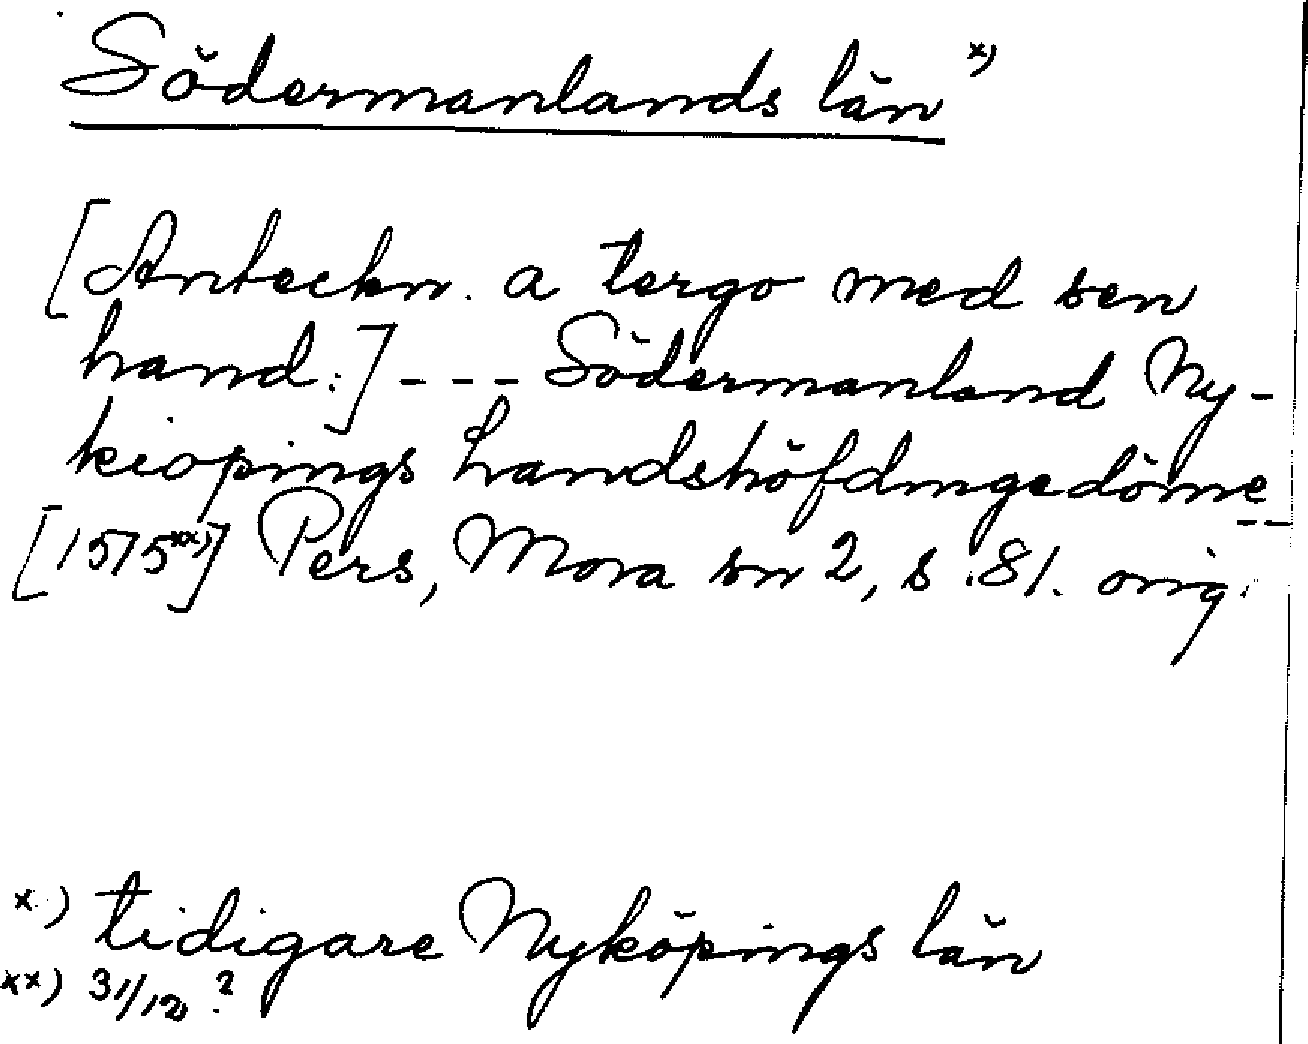 Södermanlands län x)
[Anteckn. a tergo med sen
hand:] - - - Södermanland Ny-
kiopings handshöfdingedöme
[1575xx)] Pers, Mora sn 2, s. 81. orig. --
x) tidigare Nyköpings län
xx) 31/12 ?